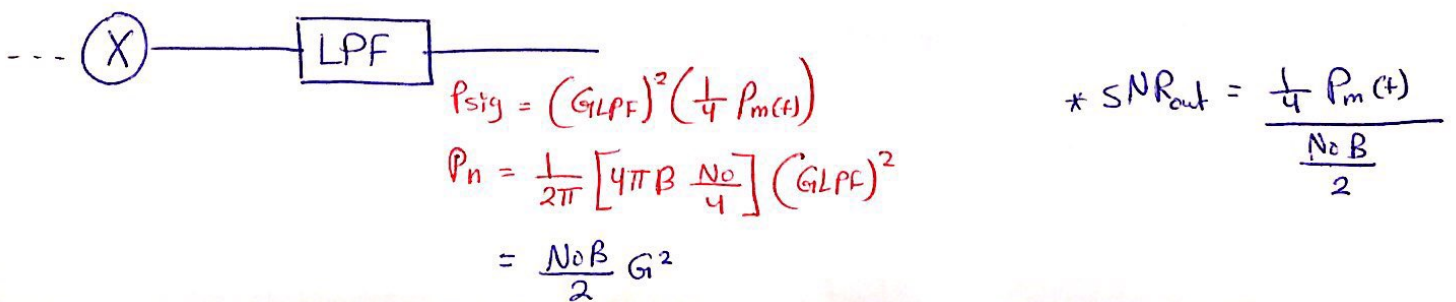 --- X LPF
Psig = (GLPF)² (1/4 Pm(t))
Pn = 1/2π [4πB No/4] (GLPF)²
= NoB/2 G²
* SNRout = 1/4 Pm(t) / NoB/2